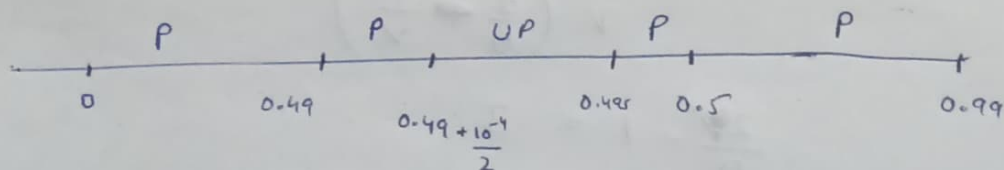 P P UP P P
0 0.49 0.49 + 10⁻⁴/2 0.495 0.5 0.99